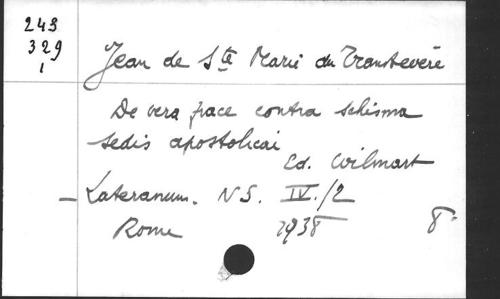 243
329
1
Jean de Ste Marie du Transtevère
De vera pace contra schisma
sedis apostolicai
Ed. Wilmart
– Lateranum. N S. IV./2
Rome 1938 8°